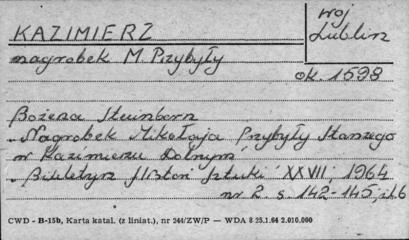 KAZIMIERZ
woj
Lublin
nagrobek M. Przybyły
ok. 1598
Bożena Steinborn
"Nagrobek Mikołaja Przybyły Starszego
w Kazimierzu Dolnym"
"Biuletyn Historii Sztuki" XXVII, 1964
nr 2. s. 142-145, il. 6
CWD - B-15b, Karta katal. (z liniat.), nr 244/ZW/P — WDA 8 25.1.64 2.010.000